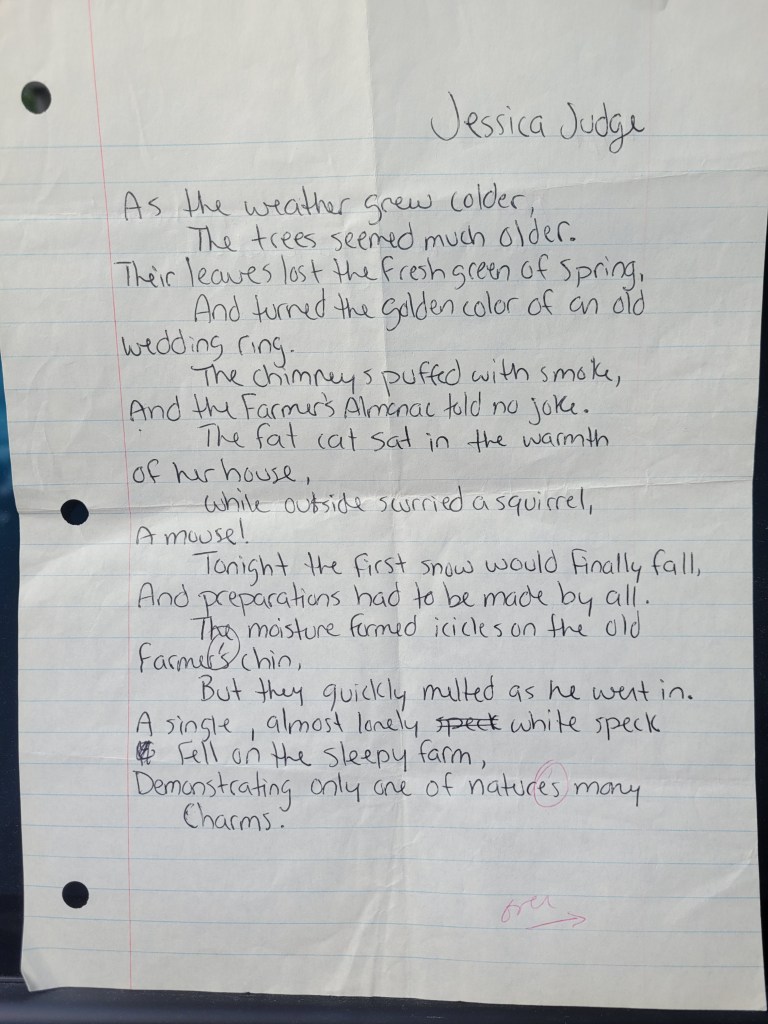 Jessica Judge
As the weather grew colder,
The trees seemed much older.
Their leaves lost the fresh green of spring,
And turned the golden color of an old
wedding ring.
The chimneys puffed with smoke,
And the Farmer's Almanac told no joke.
The fat cat sat in the warmth
of her house,
While outside scurried a squirrel,
A mouse!
Tonight the first snow would finally fall,
And preparations had to be made by all.
The moisture formed icicles on the old
farmer's chin,
But they quickly melted as he went in.
A single, almost lonely speck white speck
Fell on the sleepy farm,
Demonstrating only one of nature's many
Charms.
over